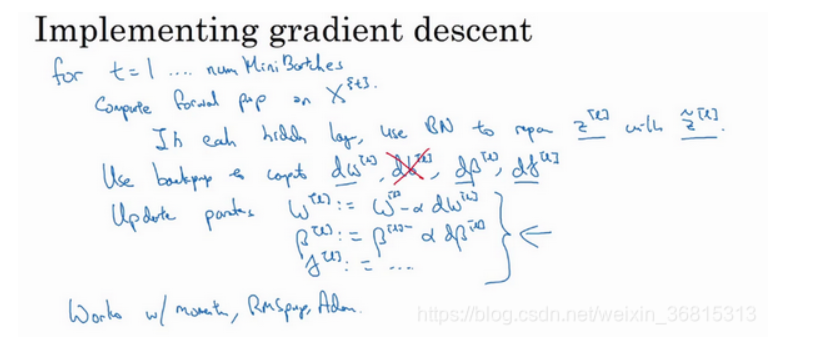 Implementing gradient descent
for t=1 .... num Mini Batches
Compute forward prop on X^{t}.
In each hidden lay, use BN to repar z^[l] with z̃^[l].
Use backprop to compt dw^[l], db^[l], dβ^[l], dγ^[l]
Update parates w^[l] := w^[l] - α dw^[l]
β^[l] := β^[l] - α dβ^[l]
γ^[l] := ...
Works w/ momentum, RMSprop, Adam.
https://blog.csdn.net/weixin_36815313